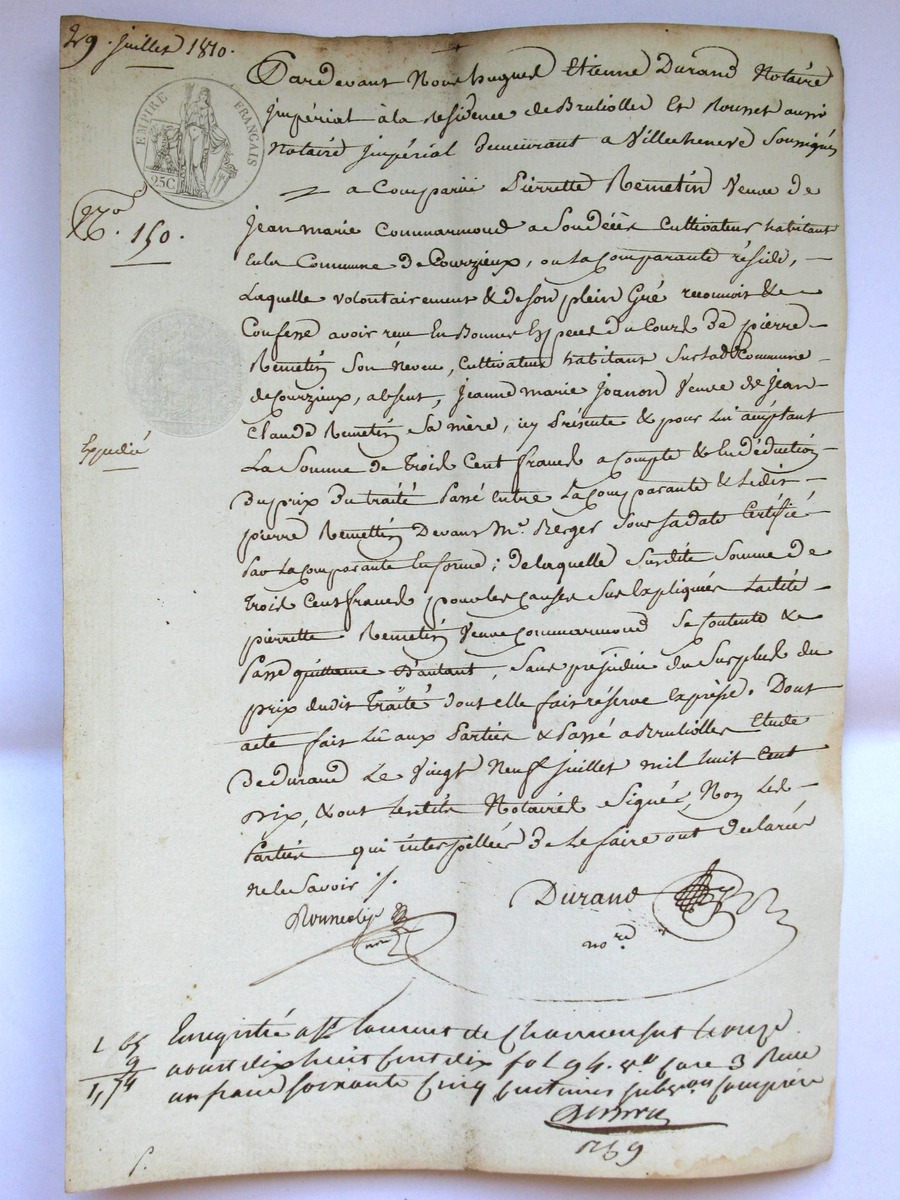 29. juillet 1810.
EMPIRE FRANÇAIS
25C
N° 150.
Expedié
Pardevant Nous hugues Etienne Durand Notaire
impérial à la residence de Brulliolles Et Rousset aussi
Notaire impérial demeurant a Villecheneve Soussignés
a Comparüe Pierrette Remetin Veuve de
Jean marie Commarmond a Son décès Cultivateur habitant
En la Commune de Courzieux, ou la Comparante réside,
Laquelle volontairement & de son plein Gré reconnoit &
Confesse avoir reçu En Bonnes Espèces du Cours de pierre
Remetin Son Neveu, Cultivateur habitant Sur lad Commune
de Courzieux, absent, Jeanne marie Joanon Veuve de Jean
Claude Remetin Sa mère, icy Présente & pour Lui acceptant
La Somme de Trois Cent francs a Compte & En déduction
Du prix Du traité Passé entre La Comparante & Ledit
pierre Remettin Devant Me. Berger Sous Sa date Certifié
Par La Comparante En forme; de laquelle Susdite Somme de
Trois Cent francs pour les Causes Sus Expliquées Ladite
pierrette Remetin Veuve Commarmond Se Contente &
Passe quittance D'autant, Sans préjudice du Surplus du
prix dudit Traité dont elle fait réserve Expresse. Dont
acte fait Lû aux Parties & Passé a Brulliolles Etude
De durand Le Vingt Neuf juillet mil huit Cent
Dix, & ont Lesdits Notaires Signés, Non Les
Parties qui interpellées De Le faire ont declarées
ne le Savoir ./.
Durand
no.re
Enregistré a St Laurent de Chamousset le onze
aoust dix huit Cent dix fol 94. v° Case 3 Reçu
un franc soixante Cinq Centimes subvon Comprise
1 65
9
1,74